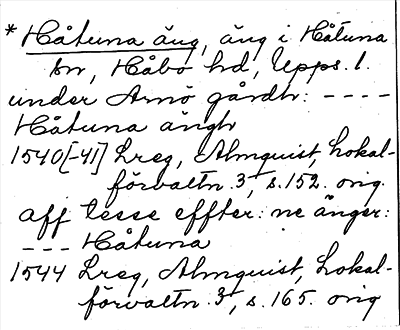 * Håtuna äng, äng i Håtuna
sn, Håbo hd, Upps. l.
under Arnö gårdh: ----
Håtuna ängh
1540[-41] Lreg, Almquist, Lokal-
förvaltn. 3, s. 152. orig.
aff tesse effter: ne änger:
--- Håtuna
1544 Lreg, Almquist, Lokal-
förvaltn. 3, s. 165. orig